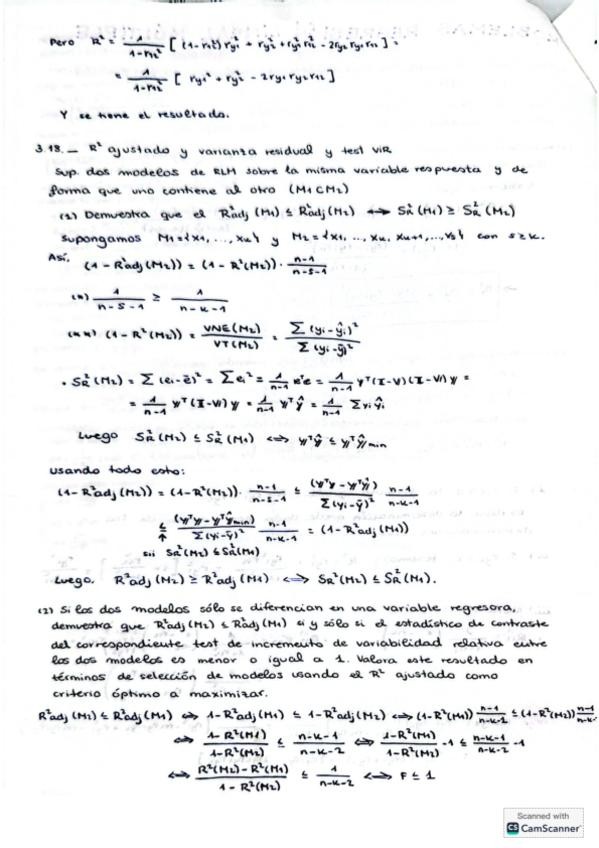 Pero R² = 1/(1-r₁₂²) [ (1-r₁₂²) ry₁² + ry₂² + ry₁² r₁₂² - 2ry₂ ry₁ r₁₂ ] =
= 1/(1-r₁₂²) [ ry₁² + ry₂² - 2ry₁ ry₂ r₁₂ ]
Y se tiene el resultado.
3.18.- R² ajustado y varianza residual y test VIR
Sup. dos modelos de RLM sobre la misma variable respuesta y de
forma que uno contiene al otro (M₁⊂M₂)
(1) Demuestra que el R²adj (M₁) ≤ R²adj(M₂) ⟷ S²R (M₁) ≥ S²R (M₂)
Supongamos M₁={x₁, ..., xₖ} y M₂={x₁, ..., xₖ, xₖ₊₁,...,xₛ} con s≥k.
Así,
(1-R²adj(M₂)) = (1-R²(M₂)) · (n-1)/(n-s-1)
(*) 1/(n-s-1) ≥ 1/(n-k-1)
(**) (1-R²(M₂)) = VNE(M₂)/VT(M₂) = Σ(yi-ŷi)²/Σ(yi-ȳ)²
· S²R (M₂) = Σ(ei-ē)² = Σei² = 1/(n-1) eᵀe = 1/(n-1) yᵀ(I-V)(I-V) y =
= 1/(n-1) yᵀ(I-V) y = 1/(n-1) yᵀŷ = 1/(n-1) Σyi ŷi
Luego S²R (M₂) ≤ S²R (M₁) ⟺ yᵀŷ ≤ yᵀŷmin
usando todo esto:
(1-R²adj(M₂)) = (1-R²(M₂)) · (n-1)/(n-s-1) ≤ (yᵀy-yᵀŷ)/Σ(yi-ȳ)² (n-1)/(n-k-1)
≤ (yᵀy-yᵀŷmin)/Σ(yi-ȳ)² (n-1)/(n-k-1) = (1-R²adj(M₁))
↑
sii S²R(M₂) ≤ S²R(M₁)
Luego, R²adj (M₂) ≥ R²adj (M₁) ⟺ S²R(M₂) ≤ S²R (M₁).
(2) Si los dos modelos sólo se diferencian en una variable regresora,
demuestra que R²adj(M₂) ≤ R²adj (M₁) si y sólo si el estadístico de contraste
del correspondiente test de incremento de variabilidad relativa entre
los dos modelos es menor o igual a 1. Valora este resultado en
términos de selección de modelos usando el R² ajustado como
criterio óptimo a maximizar.
R²adj (M₂) ≤ R²adj (M₁) ⟺ 1-R²adj (M₁) ≤ 1-R²adj(M₂) ⟺ (1-R²(M₁)) (n-1)/(n-k-2) ≤ (1-R²(M₂)) (n-1)/
⟺ (1-R²(M₁))/(1-R²(M₂)) ≤ (n-k-1)/(n-k-2) ⟺ (1-R²(M₁))/(1-R²(M₂)) -1 ≤ (n-k-1)/(n-k-2) -1
⟺ (R²(M₂)-R²(M₁))/(1-R²(M₂)) ≤ 1/(n-k-2) ⟺ F ≤ 1
Scanned with
CS CamScanner